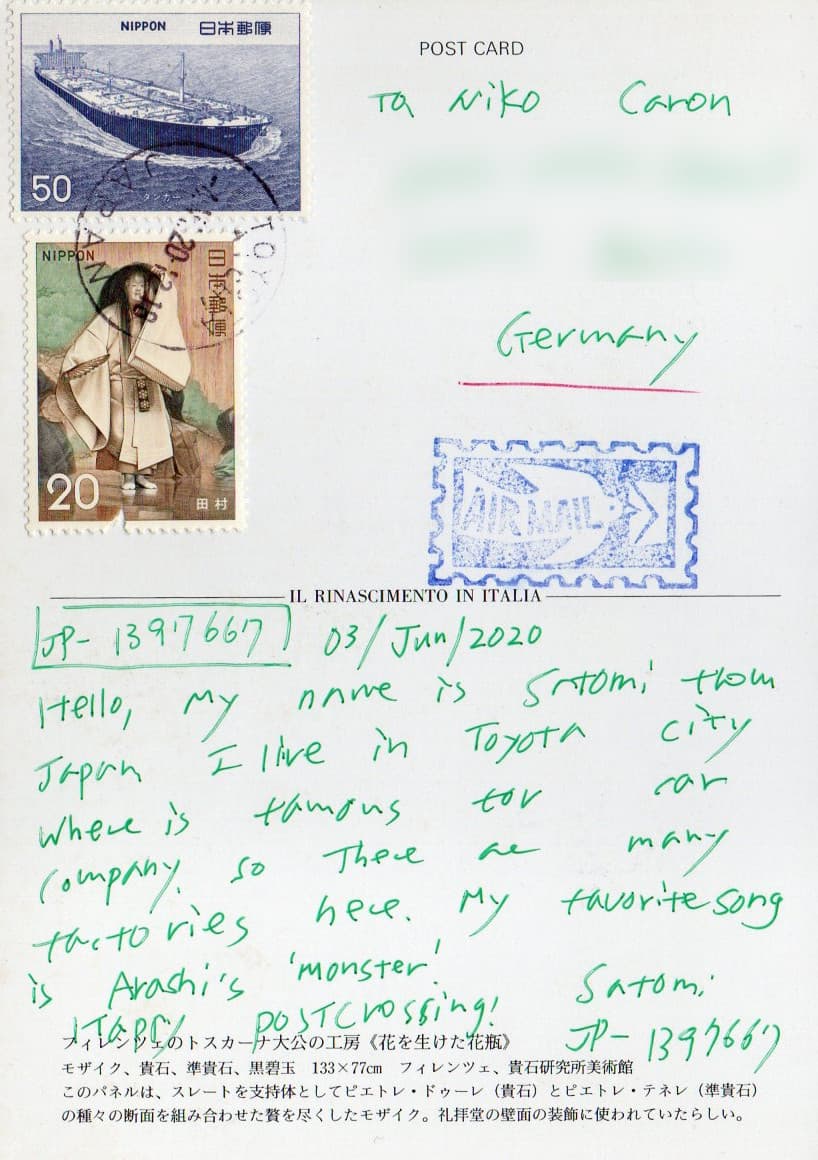 NIPPON 日本郵便
50
タンカー
NIPPON
日本郵便
20
田村
JAPAN
TOYO
POST CARD
Ta Niko Caron
Germany
AIR MAIL
IL RINASCIMENTO IN ITALIA
JP-1397667 03/Jun/2020
Hello, My name is Satomi from
Japan I live in Toyota city
where is famous for car
company. so There are many
factories here. My favorite song
is Arashi's 'monster'.
Happy postcrossing! Satomi
JP-1397667
フィレンツェのトスカーナ大公の工房《花を生けた花瓶》
モザイク、貴石、準貴石、黒碧玉 133×77cm フィレンツェ、貴石研究所美術館
このパネルは、スレートを支持体としてピエトレ・ドゥーレ（貴石）とピエトレ・テネレ（準貴石）
の種々の断面を組み合わせた贅を尽くしたモザイク。礼拝堂の壁面の装飾に使われていたらしい。